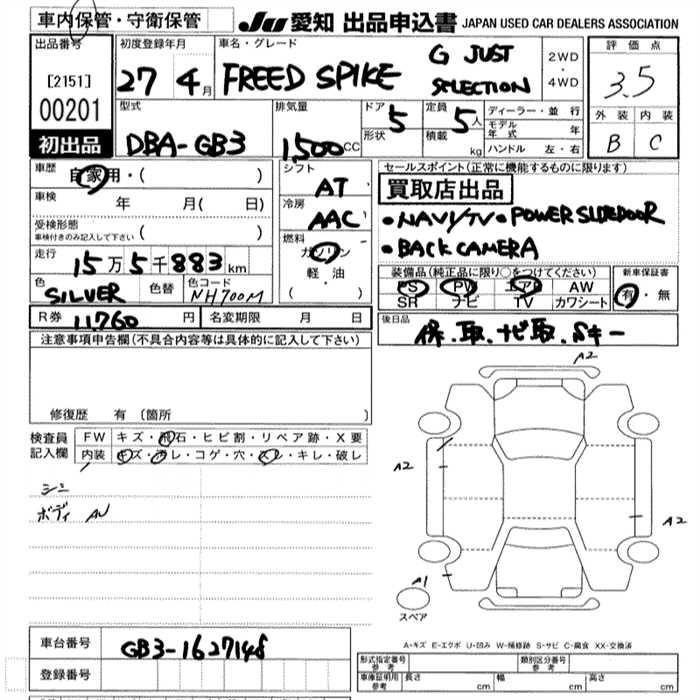 車内保管・守衛保管
JU 愛知 出品申込書 JAPAN USED CAR DEALERS ASSOCIATION
出品番号
[2151]
00201
初出品
初度登録年月
27 4月
車名・グレード
FREED SPIKE
G JUST
SELECTION
2WD
・
4WD
評価点
3.5
外装 内装
B C
型式
DBA-GB3
排気量
1500CC
ドア 5
形状
定員 5人
積載 kg
ディーラー・並行
モデル年式 年
ハンドル 左・右
車歴
自家用・( )
車検
年 月( 日)
受検形態
車検付きのみ記入して下さい ( )
走行
15万5千883km
色
SILVER
色替
色コード
NH700M
シフト
AT
冷房
AAC
燃料
ガソリン
軽・油
( )
セールスポイント(正常に機能するものに限ります)
買取店出品
•NAVI/TV •POWER SLIDEDOOR
•BACK CAMERA
装備品(純正品に限り○をつけてください)
PS PW エアB AW
SR ナビ TV カワシート
新車保証書
有・無
R券 11760 円 名変期限 月 日
後日品
保.取.ナビ取.Sキー
注意事項申告欄(不具合内容等は具体的に記入して下さい)
修復歴 有(箇所 )
検査員
記入欄
FW キズ・飛石・ヒビ割・リペア跡・X要
内装 キズ・汚レ・コゲ・穴・スレ・キレ・破レ
シミ
ボディ AU
A2
A2
A2
A1
スペア
A-キズ E-エクボ U-凹み W-補修跡 S-サビ C-腐食 XX-交換済
車台番号 GB3-1627148
登録番号
形式指定番号
参考
類別区分番号
参考
車庫証明用
参考
長さ cm 幅 cm 高さ cm